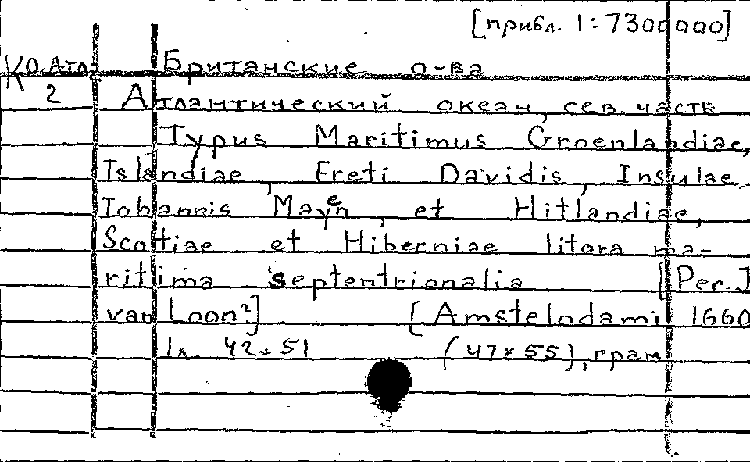 [прибл. 1:7300000]
КО.Атл. Британские о-ва
2 Атлантический океан, сев. часть
Typus Maritimus Groenlandiae,
Islandiae, Freti Davidis, Insulae
Iohannis Mayen, et Hitlandiae,
Scottiae et Hiberniae litora ma-
ritima septentrionalia [Per. J.
van Loon?] [Amstelodami 1660
1л. 42×51 (47×55), грав